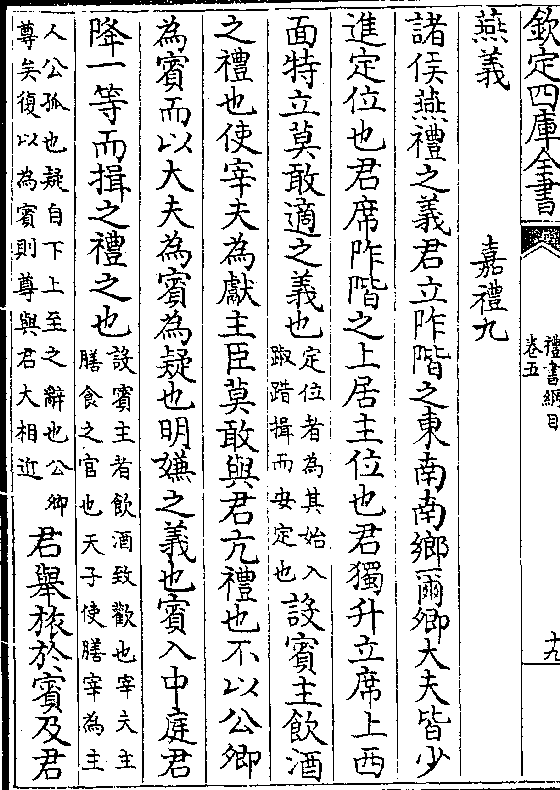 欽定四庫全書
禮書綱目
卷五
十九
燕義
嘉禮九
諸侯燕禮之義君立阼階之東南南鄉爾卿大夫皆少
進定位也君席阼階之上居主位也君獨升立席上西
面特立莫敢適之義也定位者為其始入
踧踖揖而安定也設賓主飲酒
之禮也使宰夫為獻主臣莫敢與君亢禮也不以公卿
為賓而以大夫為賓為疑也明嫌之義也賓入中庭君
降一等而揖之禮之也設賓主者飲酒致歡也宰夫主
膳食之官也天子使膳宰為主
人公孤也疑自下上至之辭也公卿
尊矣復以為賓則尊與君大相近君舉旅於賓及君